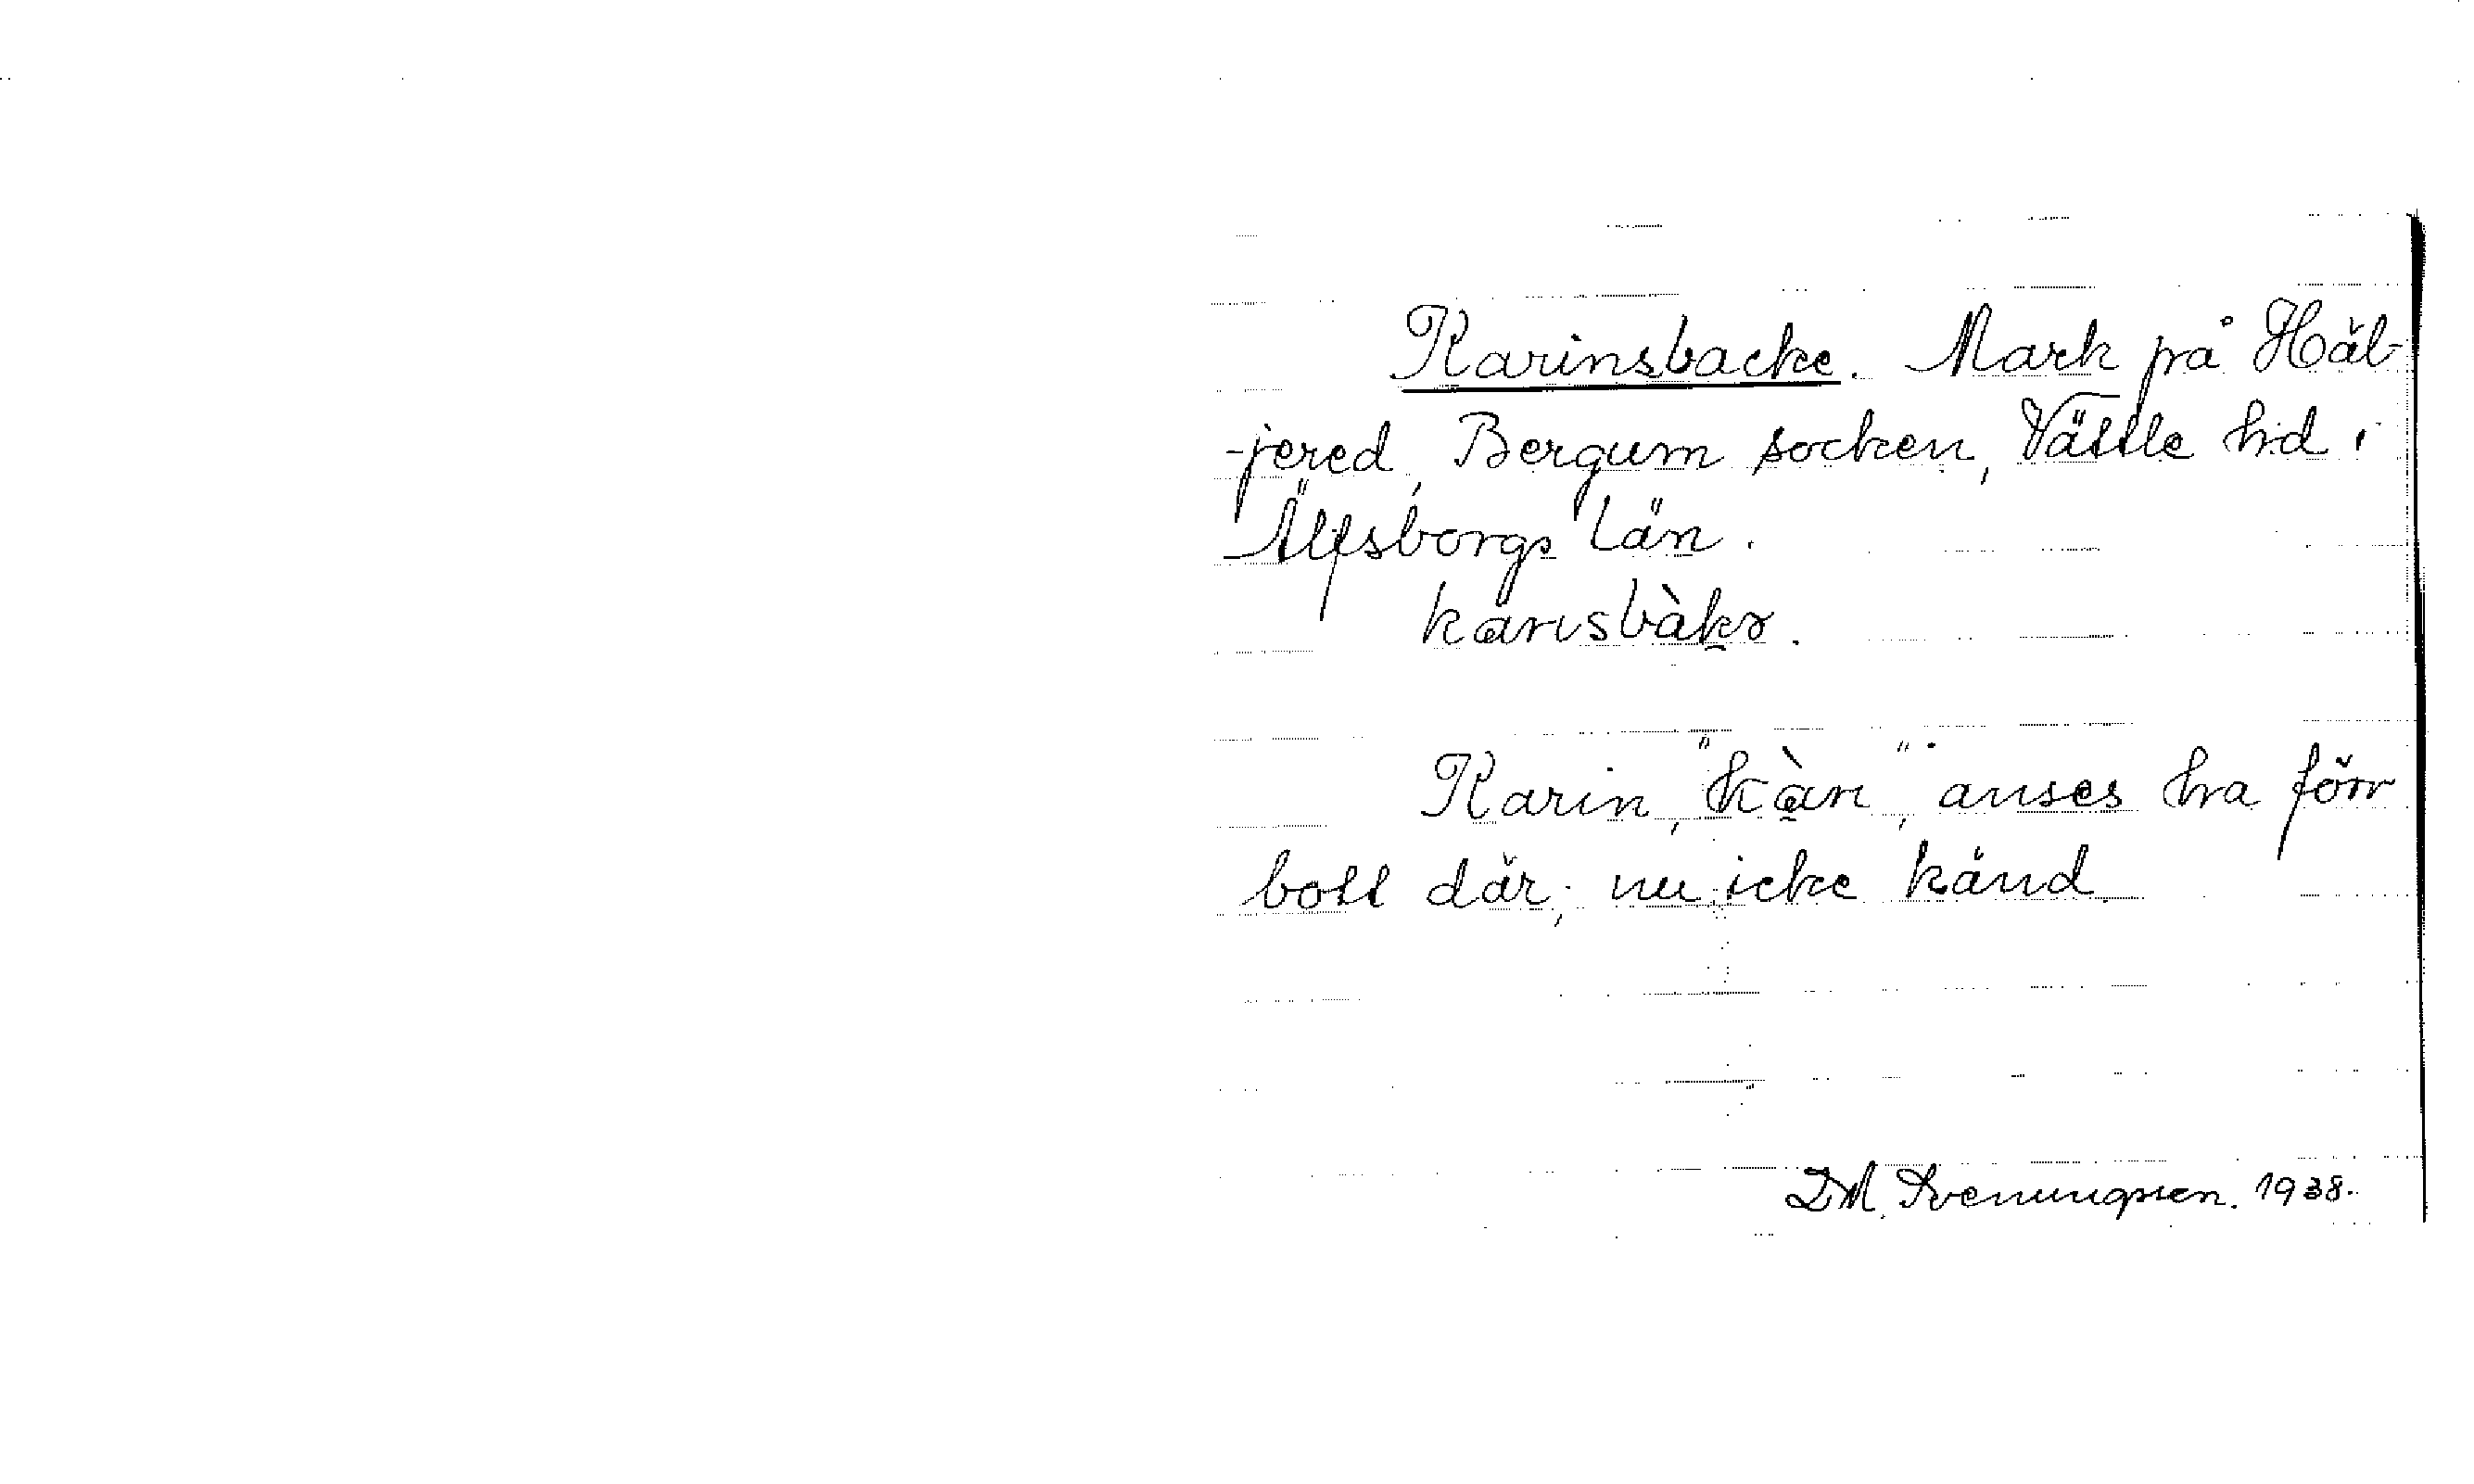 Karinsbacke. Mark på Häl-
-jered, Bergum socken, Vättle hd i
Älfsborgs län.
Karin, "kàrı", anses ha förr
bott där; nu icke känd.
DM. Sveningsson. 1938.